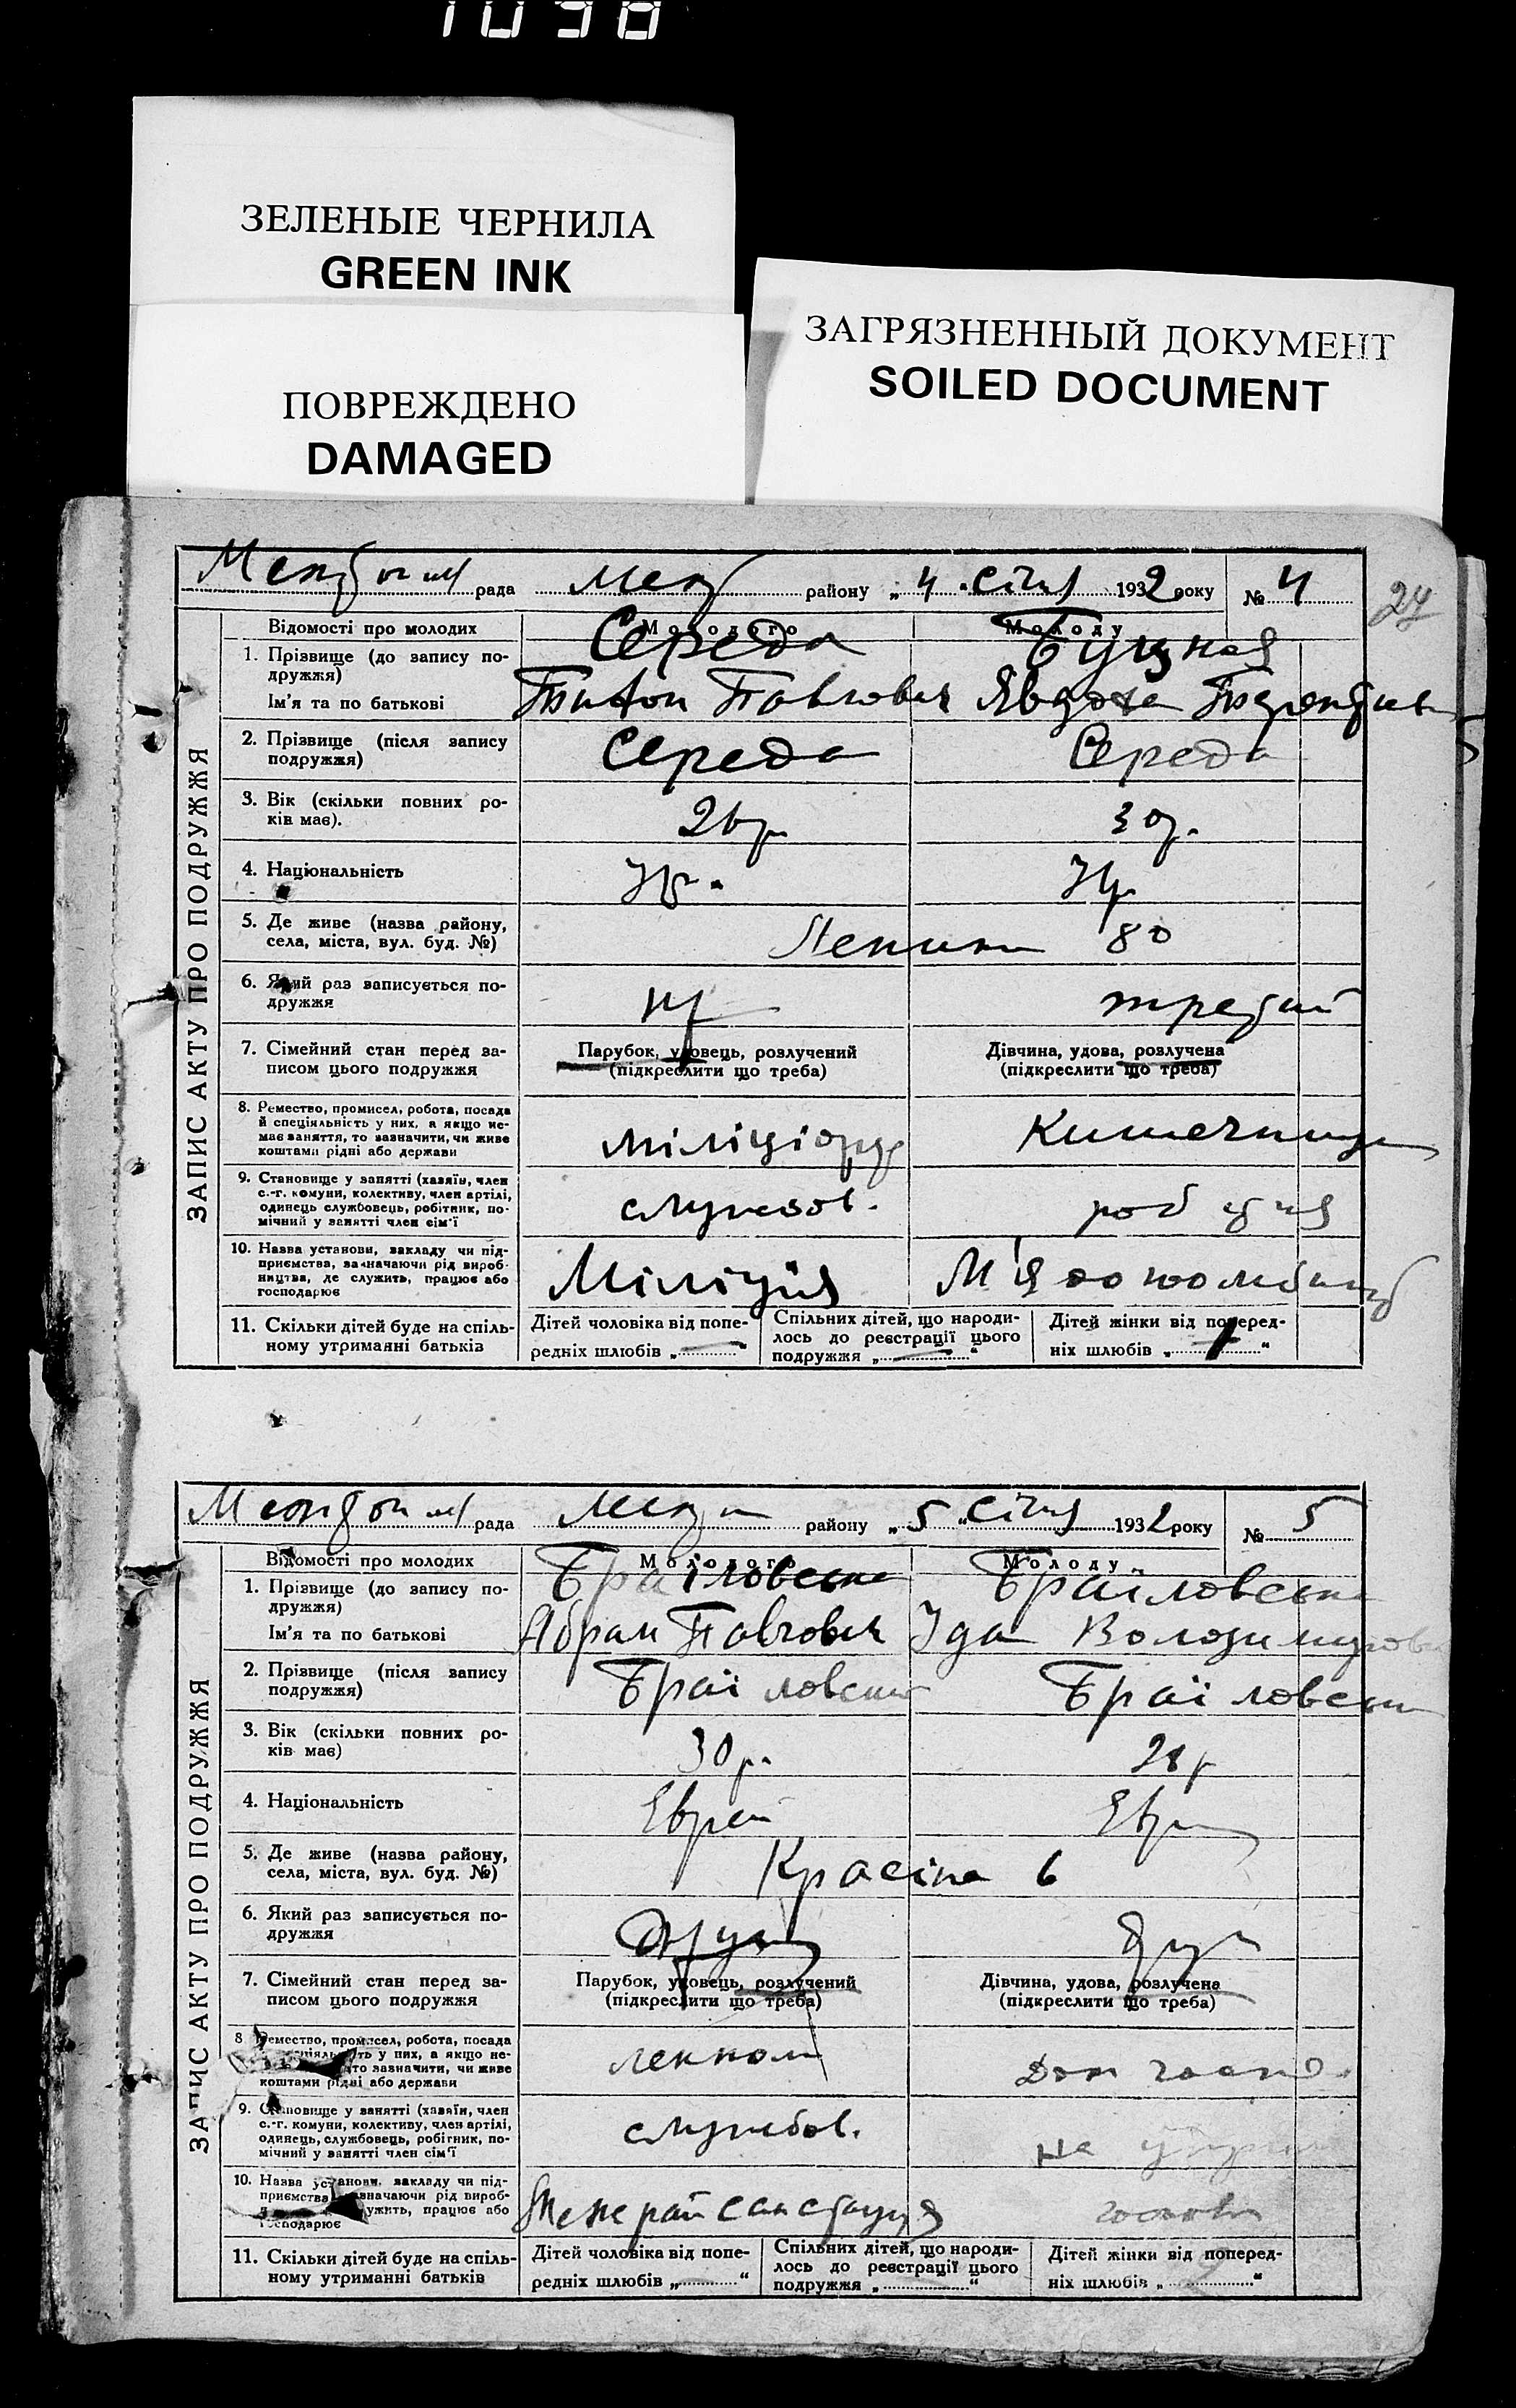 1038
ЗЕЛЕНЫЕ ЧЕРНИЛА
GREEN INK
ЗАГРЯЗНЕННЫЙ ДОКУМЕНТ
SOILED DOCUMENT
ПОВРЕЖДЕНО
DAMAGED
рада району „ 4 " січня 1932 року № 4
24
ЗАПИС АКТУ ПРО ПОДРУЖЖЯ
Відомості про молодих Молодого Молоду
1. Прізвище (до запису по-
дружжя) Середа
Ім'я та по батькові Павлович Явдоха
2. Прізвище (після запису
подружжя) Середа Середа
3. Вік (скільки повних ро-
ків має). 26 р. 30 р.
4. Національність Укр. Укр
5. Де живе (назва району,
села, міста, вул. буд. №) Леніна 80
6. Який раз записується по-
дружжя третий
7. Сімейний стан перед за-
писом цього подружжя Парубок, удовець, розлучений
(підкреслити що треба) Дівчина, удова, розлучена
(підкреслити що треба)
8. Ремество, промисел, робота, посада
й спеціяльність у них, а якщо не-
має заняття, то зазначити, чи живе
коштами рідні або держави міліціонер Кишечниця
9. Становище у занятті (хазяїн, член
с.-г. комуни, колективу, член артілі,
одинець службовець, робітник, по-
мічний у занятті член сім'ї службов.
10. Назва установи, закладу чи під-
приємства, зазначаючи рід вироб-
ництва, де служить, працює або
господарює Міліція
11. Скільки дітей буде на спіль-
ному утриманні батьків Дітей чоловіка від попе-
редніх шлюбів „ — " Спільних дітей, що народи-
лось до реєстрації цього
подружжя „ — " Дітей жінки від поперед-
ніх шлюбів „ 1 "
рада району „ 5 " січня 1932 року № 5
ЗАПИС АКТУ ПРО ПОДРУЖЖЯ
Відомості про молодих Молодого Молоду
1. Прізвище (до запису по-
дружжя) Браїловська
Ім'я та по батькові Абрам Павлович Іда Володимировна
2. Прізвище (після запису
подружжя)
3. Вік (скільки повних ро-
ків має) 30 р. 28 р
4. Національність Еврей
5. Де живе (назва району,
села, міста, вул. буд. №) Красіна 6
6. Який раз записується по-
дружжя
7. Сімейний стан перед за-
писом цього подружжя Парубок, удовець, розлучений
(підкреслити що треба) Дівчина, удова, розлучена
(підкреслити що треба)
8 Ремество, промисел, робота, посада
у них, а якщо не-
то зазначити, чи живе
коштами рідні або держави лекпом
9. Становище у занятті (хазяїн, член
с.-г. комуни, колективу, член артілі,
одинець, службовець, робітник, по-
мічний у занятті член сім'ї службов. на
10. Назва установи, закладу чи під-
приємства зазначаючи рід вироб-
ужить, працює або
господарює
11. Скільки дітей буде на спіль-
ному утриманні батьків Дітей чоловіка від попе-
редніх шлюбів „ " Спільних дітей, що народи-
лось до реєстрації цього
подружжя „ " Дітей жінки від поперед-
ніх шлюбів „ "